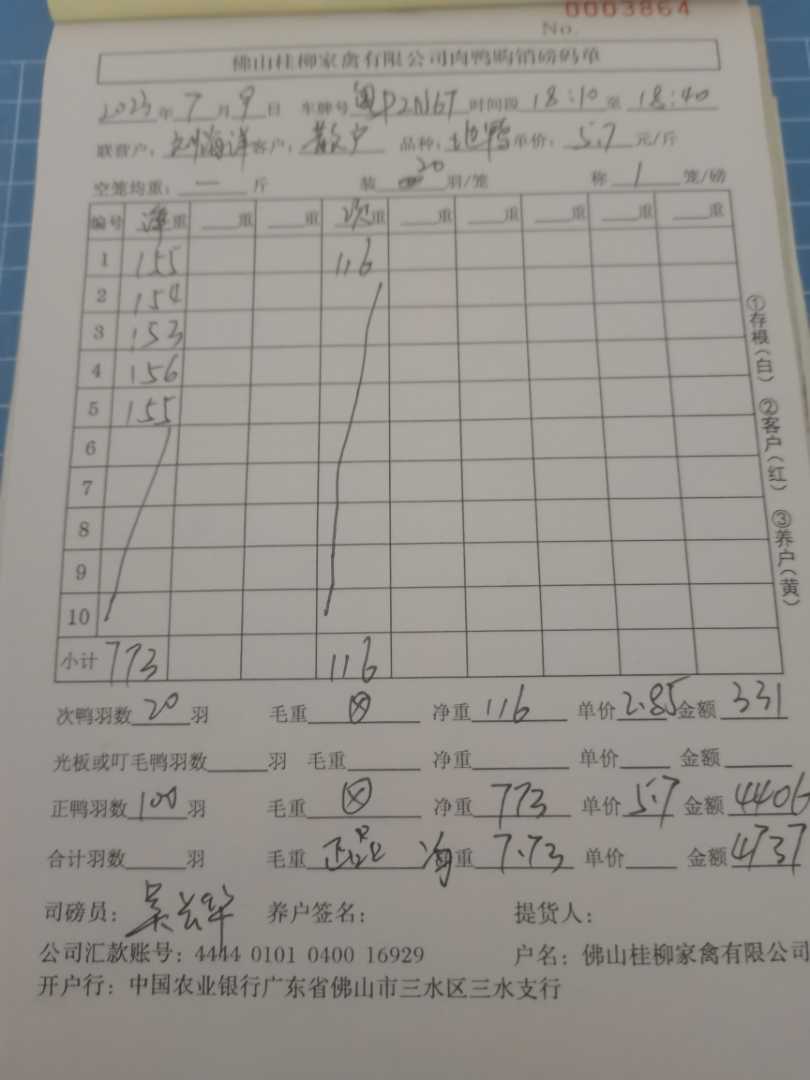 No. 0003864
佛山桂柳家禽有限公司肉鸭购销磅码单
2023年7月9日 车牌号 P2N67 时间段 18:10 至 18:40
联营户: 刘海洋 客户: 散户 品种: 土鸭 单价: 5.7 元/斤
空笼均重: 一 斤 装 20 羽/笼 称 1 笼/磅
编号 净重 重 重 次重 重 重 重 重 重
1 155 116
2 154
3 153
4 156
5 155
6
7
8
9
10
小计 773 116
次鸭羽数 20 羽 毛重 净重 116 单价 2.85 金额 331
光板或叮毛鸭羽数 羽 毛重 净重 单价 金额
正鸭羽数 100 羽 毛重 净重 773 单价 5.7 金额 4406
合计羽数 羽 毛重 正品 均重 7.73 单价 金额 4737
司磅员: 养户签名: 提货人:
公司汇款账号: 4444 0101 0400 16929 户名: 佛山桂柳家禽有限公司
开户行: 中国农业银行广东省佛山市三水区三水支行
①存根(白) ②客户(红) ③养户(黄)